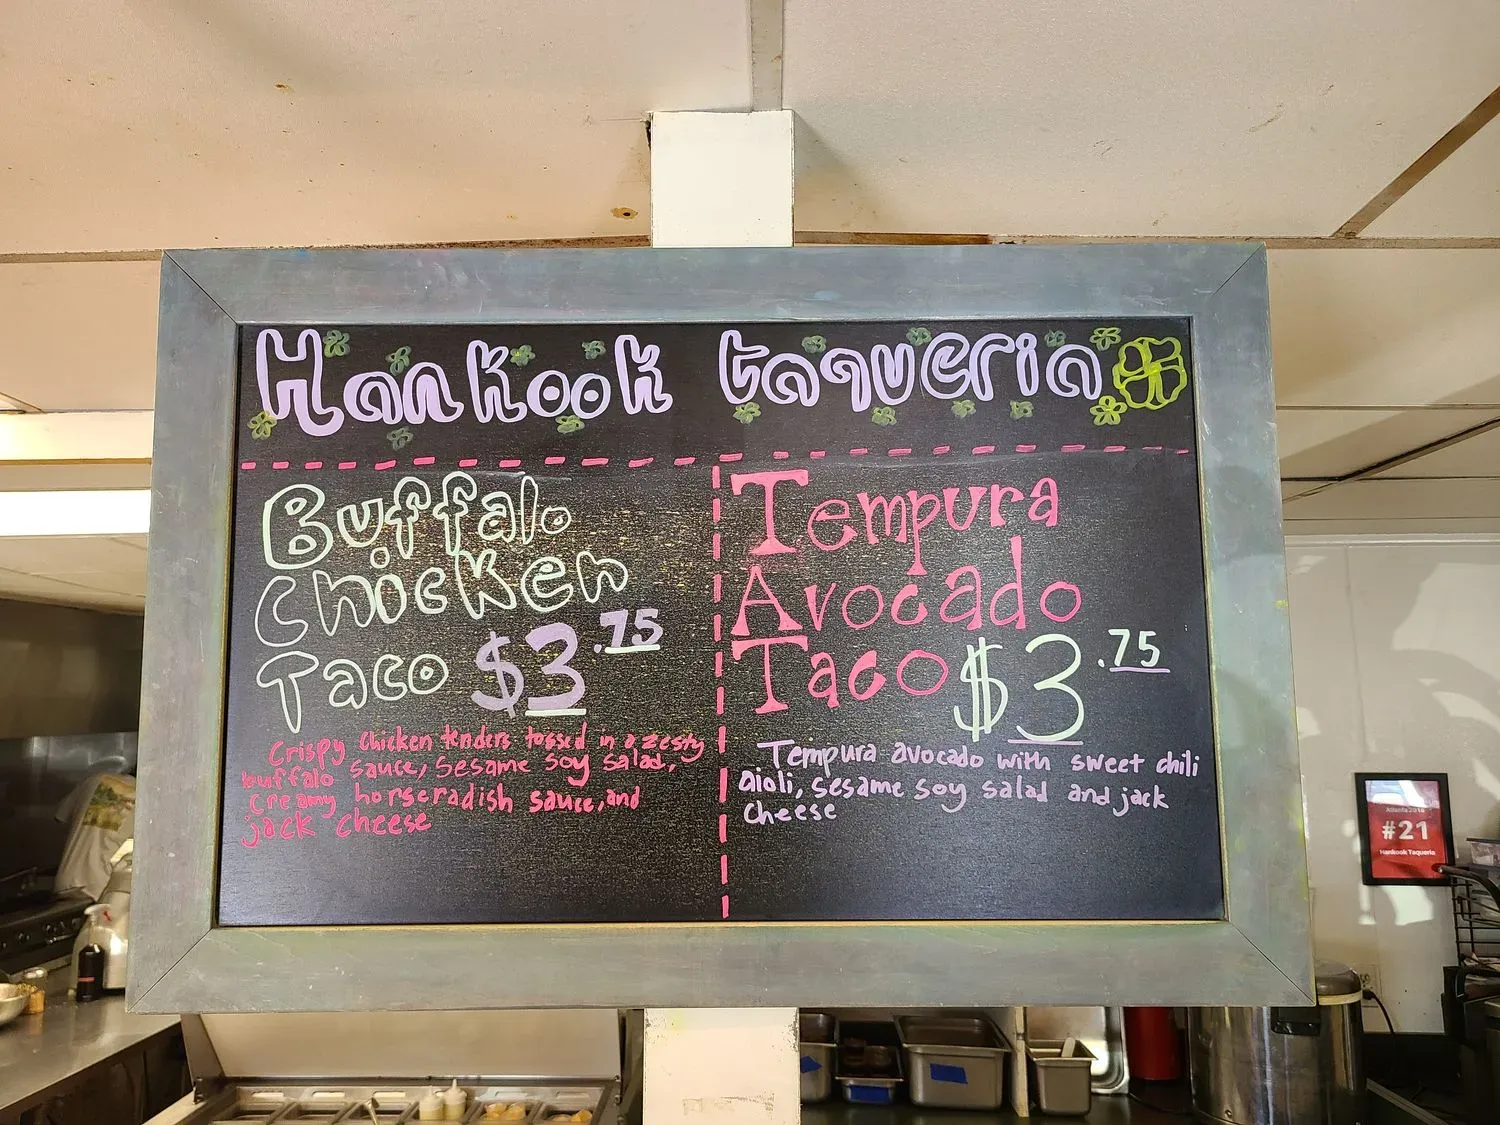 Hankook taqueria
Buffalo
Chicken
Taco $3.75
Crispy chicken tenders tossed in a zesty
buffalo sauce, sesame soy salad,
creamy horseradish sauce, and
jack cheese
Tempura
Avocado
Taco $3.75
Tempura avocado with sweet chili
aioli, sesame soy salad and jack
cheese
Atlanta 2018
#21
Hankook Taqueria